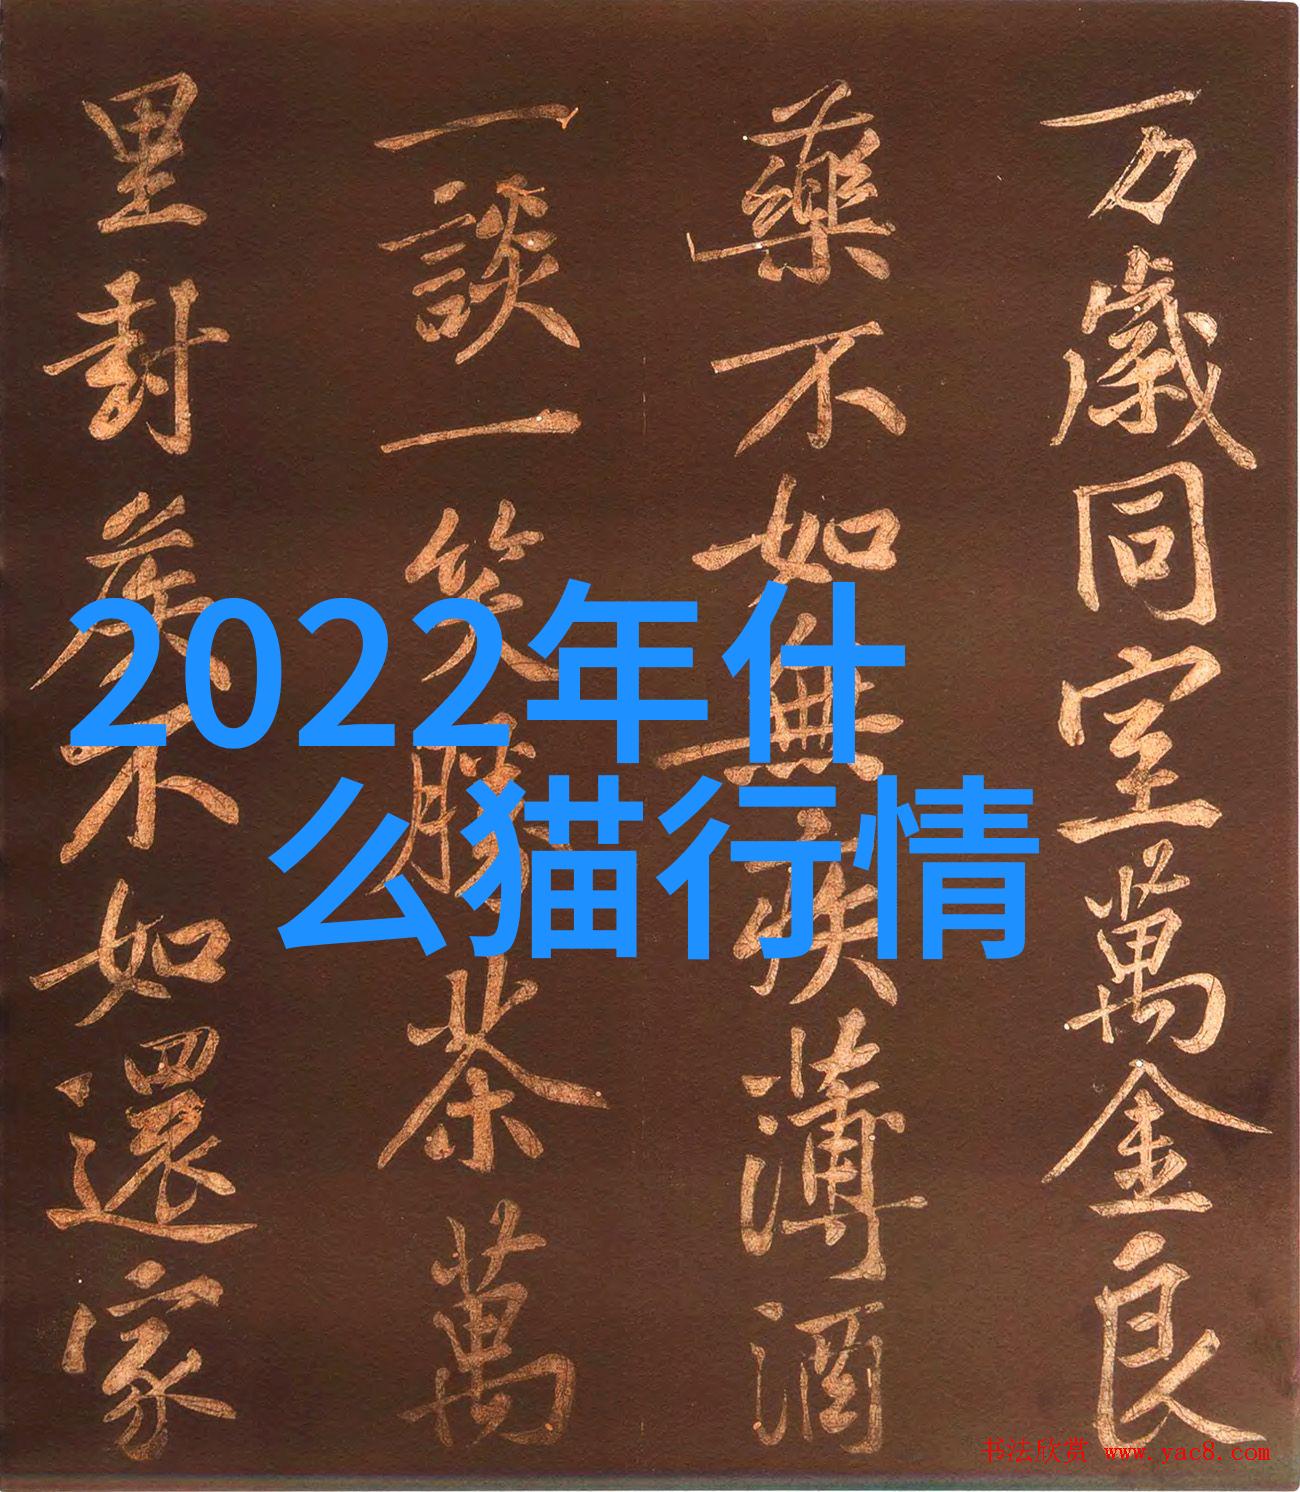 万歲同室萬金良
藥不如無疾薄酒
一談一笑勝茶萬
里封侯不如還家
2022年什
么猫行情
书法欣赏 www.yac8.com